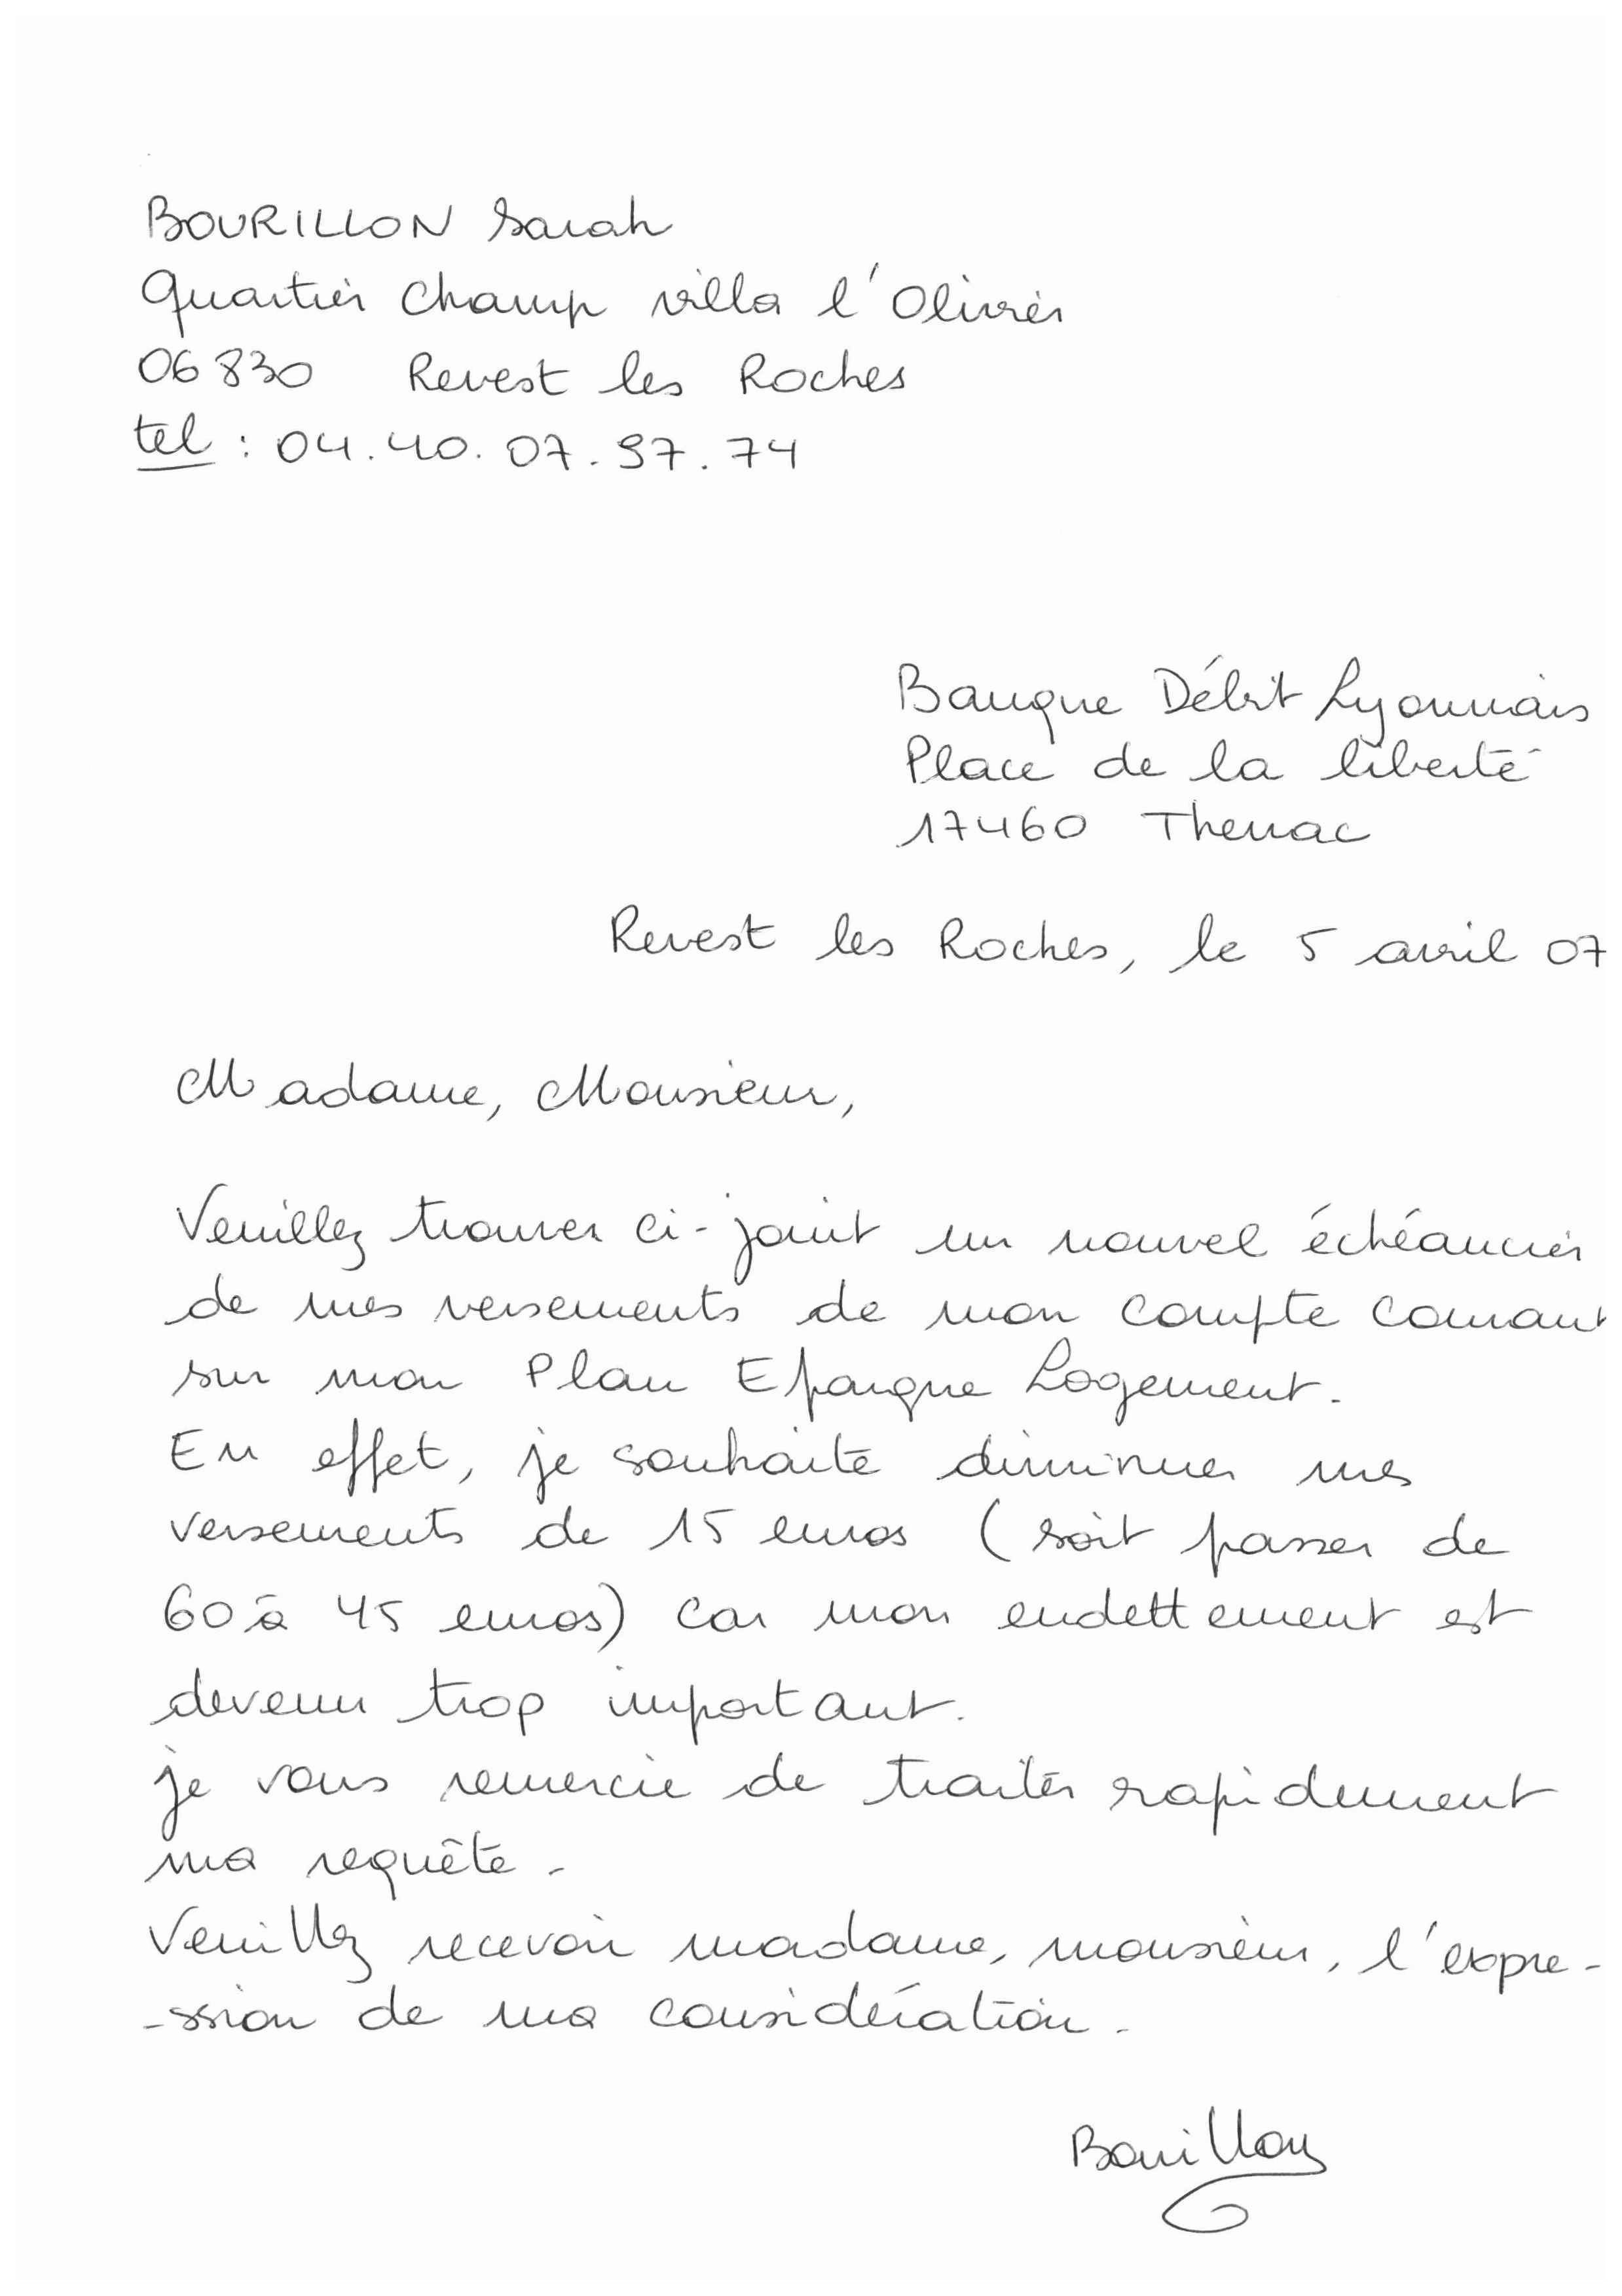 BOURILLON Sarah
Quartier Champ villa l'Olivier
06830 Revest les Roches
tel : 04.40.07.97.74
Banque Débit Lyonnais
Place de la liberté
17460 Thenac
Revest les Roches, le 5 avril 07
Madame, Monsieur,
Veuillez trouver ci-joint un nouvel échéancier
de mes versements de mon compte courant
sur mon Plan Epargne Logement.
En effet, je souhaite diminuer mes
versements de 15 euros (soit passer de
60 à 45 euros) car mon endettement est
devenu trop important.
je vous remercie de traiter rapidement
ma requête.
Veuillez recevoir madame, monsieur, l'expre-
-ssion de ma considération.
Bourillon